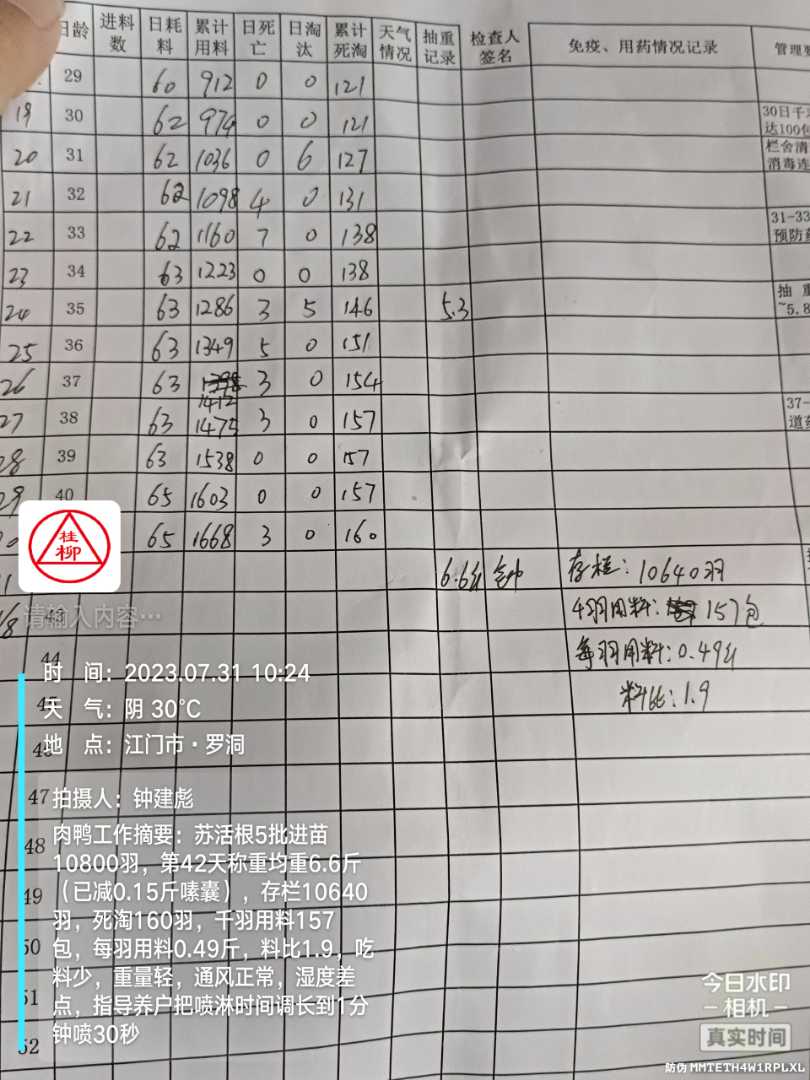 日龄 进料数 日耗料 累计用料 日死亡 日淘汰 累计死淘 天气情况 抽重记录 检查人签名 免疫、用药情况记录 管理要
29 60 912 0 0 121
19 30 62 974 0 0 121 30日千 达100包
20 31 62 1036 0 6 127 栏舍清 消毒连
21 32 62 1098 4 0 131
22 33 62 1160 7 0 138 31-33 预防药
23 34 63 1223 0 0 138
24 35 63 1286 3 5 146 5.3 抽重 ~5.8
25 36 63 1349 5 0 151
26 37 63 1412 3 0 154
27 38 63 1475 3 0 157 37- 道药
28 39 63 1538 0 0 157
29 40 65 1603 0 0 157
65 1668 3 0 160
6.6斤 钟 存栏：10640羽
43 千羽用料：157包
44 每羽用料：0.49斤
45 料比：1.9
46
47
48
49
50
51
52
桂柳
请输入内容…
时 间：2023.07.31 10:24
天 气：阴 30℃
地 点：江门市·罗洞
拍摄人：钟建彪
肉鸭工作摘要：苏活根5批进苗
10800羽，第42天称重均重6.6斤
（已减0.15斤嗉囊），存栏10640
羽，死淘160羽，千羽用料157
包，每羽用料0.49斤，料比1.9，吃
料少，重量轻，通风正常，湿度差
点，指导养户把喷淋时间调长到1分
钟喷30秒
今日水印
-相机-
真实时间
防伪 MMTETH4W1RPLXL